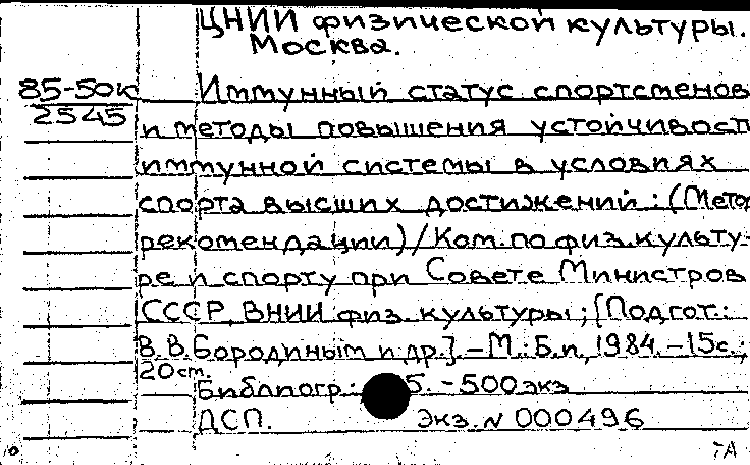 ЦНИИ физической культуры.
Москва.
85-50к
2545
Иммунный статус спортсменов
и методы повышения устойчивост
иммунной системы в условиях
спорта высших достижений: (Мето
рекомендации) / Ком. по физ. культу-
ре и спорту при Совете Министров
СССР, ВНИИ физ. культуры; [Подгот.:
В.В. Бородиным и др.] - М.: Б.и, 1984. - 15с.;
20 ст.
Библиогр.: 5. - 500 экз
ДСП. Экз. N 000496